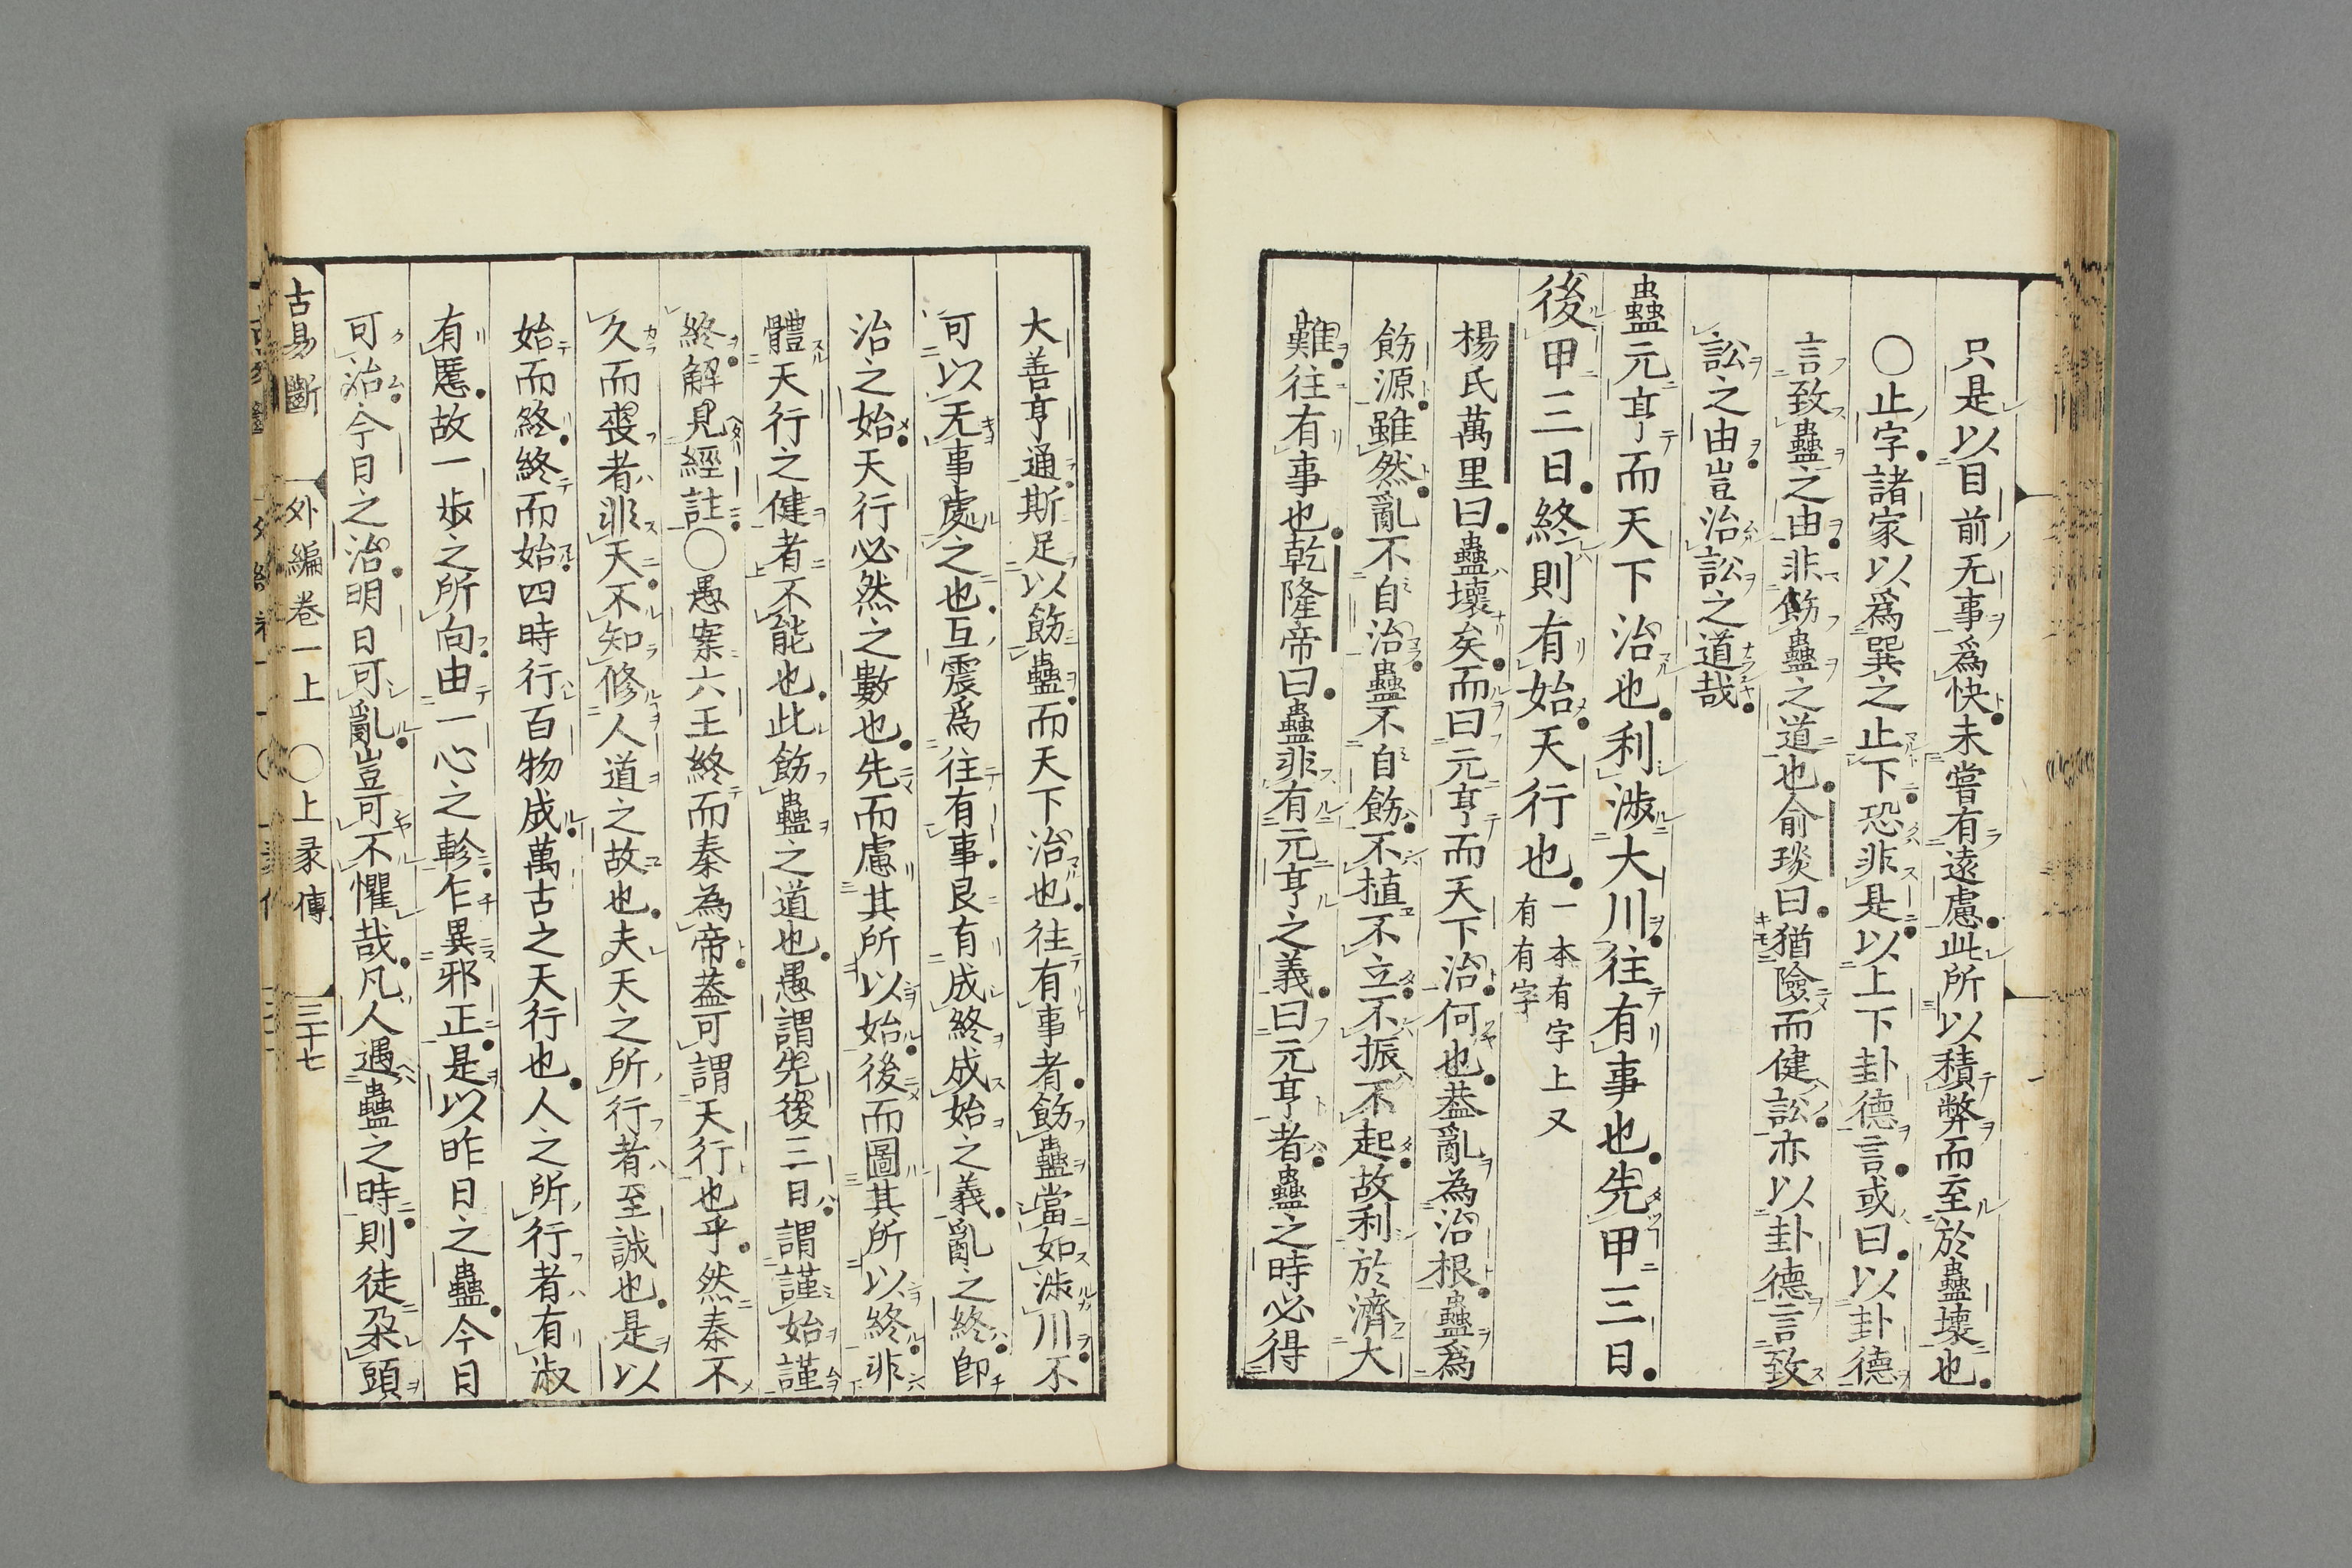 只是以目前无事爲快未嘗有遠慮此所以積弊而至於蠱壞也
〇止字諸家以爲巽之止下恐非是以上下卦德言或曰以卦德
言致蠱之由非飭蠱之道也俞琰曰猶險而健訟亦以卦德言致
訟之由豈治訟之道哉
蠱元亨而天下治也利涉大川往有事也先甲三日
後甲三日終則有始天行也
一本有字上又
有有字
楊氏萬里曰蠱壞矣而曰元亨而天下治何也葢亂為治根蠱爲
飭源雖然亂不自治蠱不自飭不植不立不振不起故利於濟大
難往有事也乾隆帝曰蠱非有元亨之義曰元亨者蠱之時必得
大善亨通斯足以飭蠱而天下治也往有事者飭蠱當如涉川不
可以无事處之也互震爲往有事艮有成終成始之義亂之終即
治之始天行必然之數也先而慮其所以始後而圖其所以終非
體天行之健者不能也此飭蠱之道也愚謂先後三日謂謹始謹
終解見經註〇愚案六王終而秦為帝葢可謂天行也乎然秦不
久而喪者非天不知修人道之故也夫天之所行者至誠也是以
始而終終而始四時行百物成萬古之天行也人之所行者有淑
有慝故一步之所向由一心之軫乍異邪正是以昨日之蠱今日
可治今日之治明日可亂豈可不懼哉凡人遇蠱之時則徒朶頭
古易斷　外編卷一上　〇上彖傳　三十七